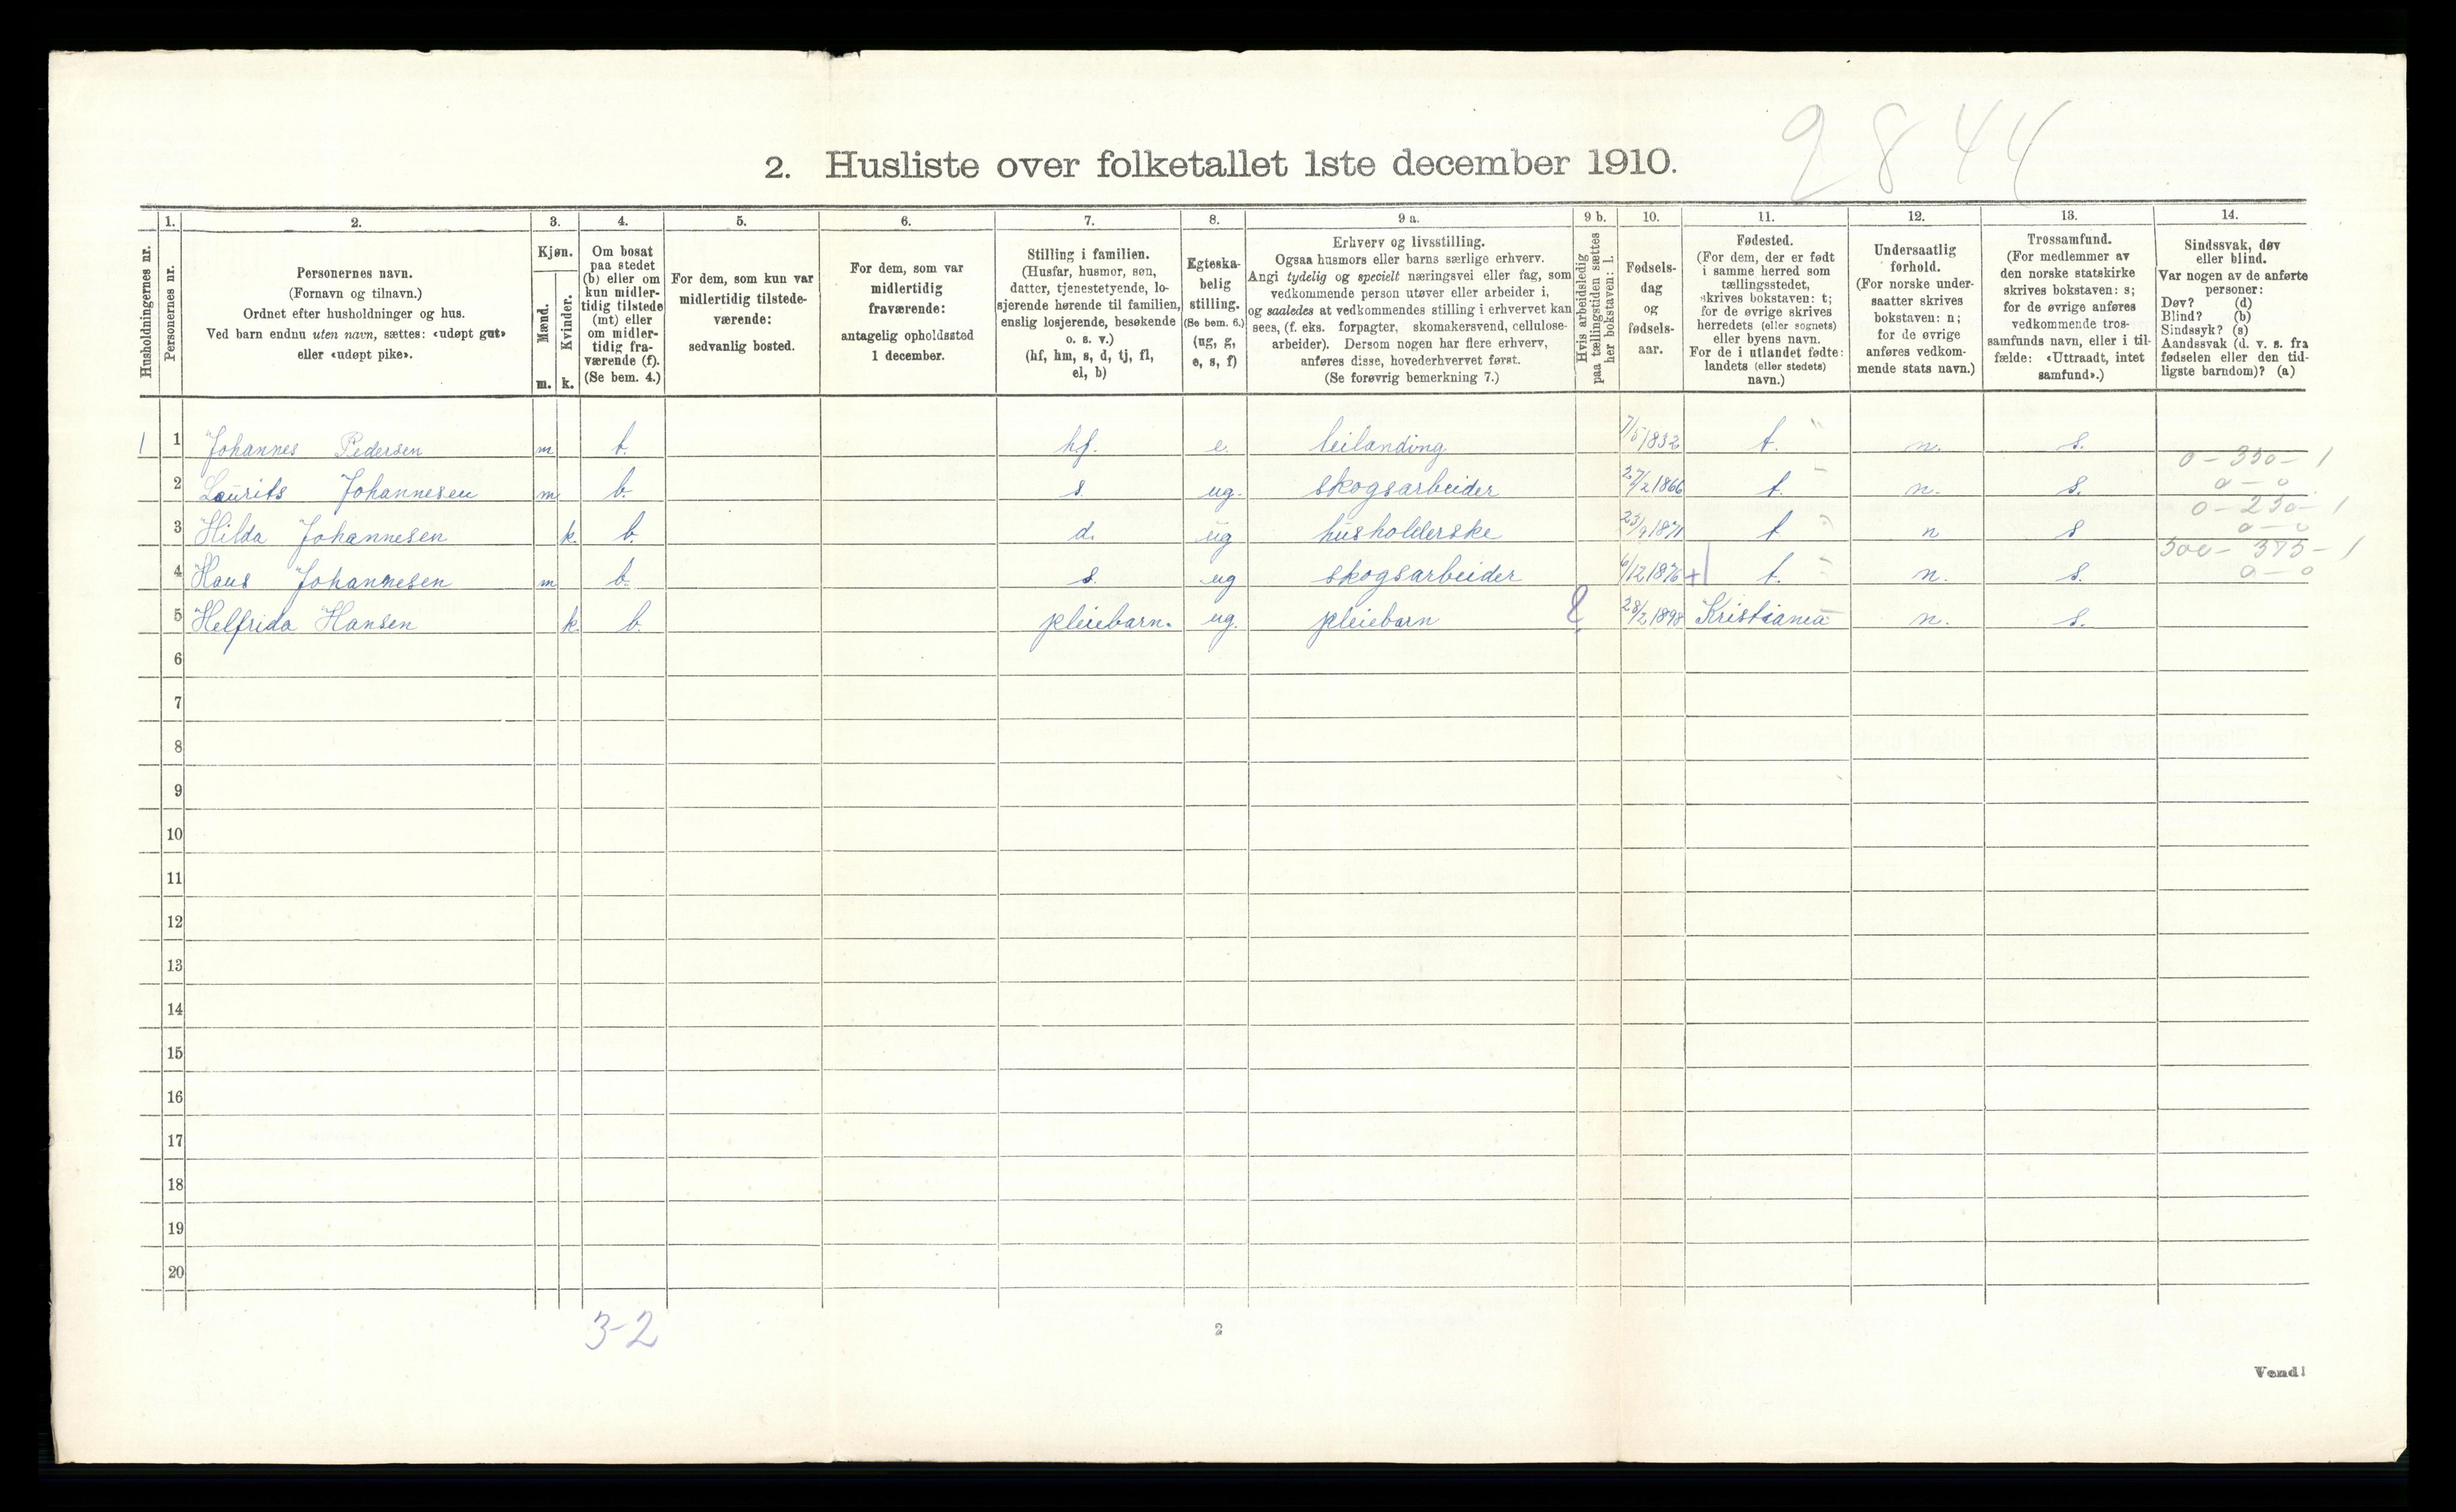 2844
2. Husliste over folketallet 1ste december 1910.
Husholdningernes nr.
1.
Personernes nr.
2.
Personernes navn.
(Fornavn og tilnavn.)
Ordnet efter husholdninger og hus.
Ved barn endnu uten navn, sættes: «udøpt gut»
eller «udøpt pike».
3.
Kjøn.
Mænd.
Kvinder.
m. k.
4.
Om bosat
paa stedet
(b) eller om
kun midler-
tidig tilstede
(mt) eller
om midler-
tidig fra-
værende (f).
(Se bem. 4.)
5.
For dem, som kun var
midlertidig tilstede-
værende:
sedvanlig bosted.
6.
For dem, som var
midlertidig
fraværende:
antagelig opholdssted
1 december.
7.
Stilling i familien.
(Husfar, husmor, søn,
datter, tjenestetyende, lo-
sjerende hørende til familien,
enslig losjerende, besøkende
o. s. v.)
(hf, hm, s, d, tj, fl,
el, b)
8.
Egteska-
belig
stilling.
(Se bem. 6.)
(ug, g,
e, s, f)
9 a.
Erhverv og livsstilling.
Ogsaa husmors eller barns særlige erhverv.
Angi tydelig og specielt næringsvei eller fag, som
vedkommende person utøver eller arbeider i,
og saaledes at vedkommendes stilling i erhvervet kan
sees, (f. eks. forpagter, skomakersvend, cellulose-
arbeider). Dersom nogen har flere erhverv,
anføres disse, hovederhvervet først.
(Se forøvrig bemerkning 7.)
9 b.
Hvis arbeidsledig
paa tællingstiden sættes
her bokstaven: l.
10.
Fødsels-
dag
og
fødsels-
aar.
11.
Fødested.
(For dem, der er født
i samme herred som
tællingsstedet,
skrives bokstaven: t;
for de øvrige skrives
herredets (eller sognets)
eller byens navn.
For de i utlandet fødte:
landets (eller stedets)
navn.)
12.
Undersaatlig
forhold.
(For norske under-
saatter skrives
bokstaven: n;
for de øvrige
anføres vedkom-
mende stats navn.)
13.
Trossamfund.
(For medlemmer av
den norske statskirke
skrives bokstaven: s;
for de øvrige anføres
vedkommende tros-
samfunds navn, eller i til-
fælde: «Uttraadt, intet
samfund».)
14.
Sindssvak, døv
eller blind.
Var nogen av de anførte
personer:
Døv? (d)
Blind? (b)
Sindssyk? (s)
Aandssvak (d. v. s. fra
fødselen eller den tid-
ligste barndom)? (a)
1 1 Johannes Pedersen m b. hf. e. leilanding 7/5 1832 t. n. s.
0 - 350 - 1
2 Laurits Johannesen m b. s. ug. skogsarbeider 27/2 1866 t. n. s. 0 - 0
0 - 250 - 1
3 Hilda Johannesen k. b. d. ug husholderske 23/9 1871 t n s 0 - 0
500 - 375 - 1
4 Hans Johannesen m b. s. ug skogsarbeider 6/12 1876 + t. n. s. 0 - 0
5 Helfrida Hansen k b. pleiebarn. ug. pleiebarn 28/2 1898 Kristiania n. s.
6
7
8
9
10
11
12
13
14
15
16
17
18
19
20
3-2
2
Vend!